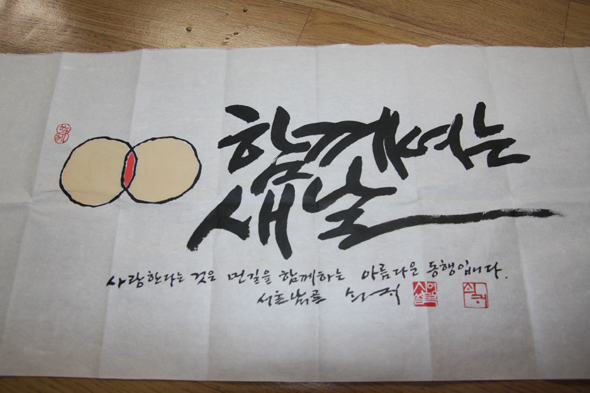 함께여는
새날
사랑한다는 것은 먼길을 함께하는 아름다운 동행입니다.
서초